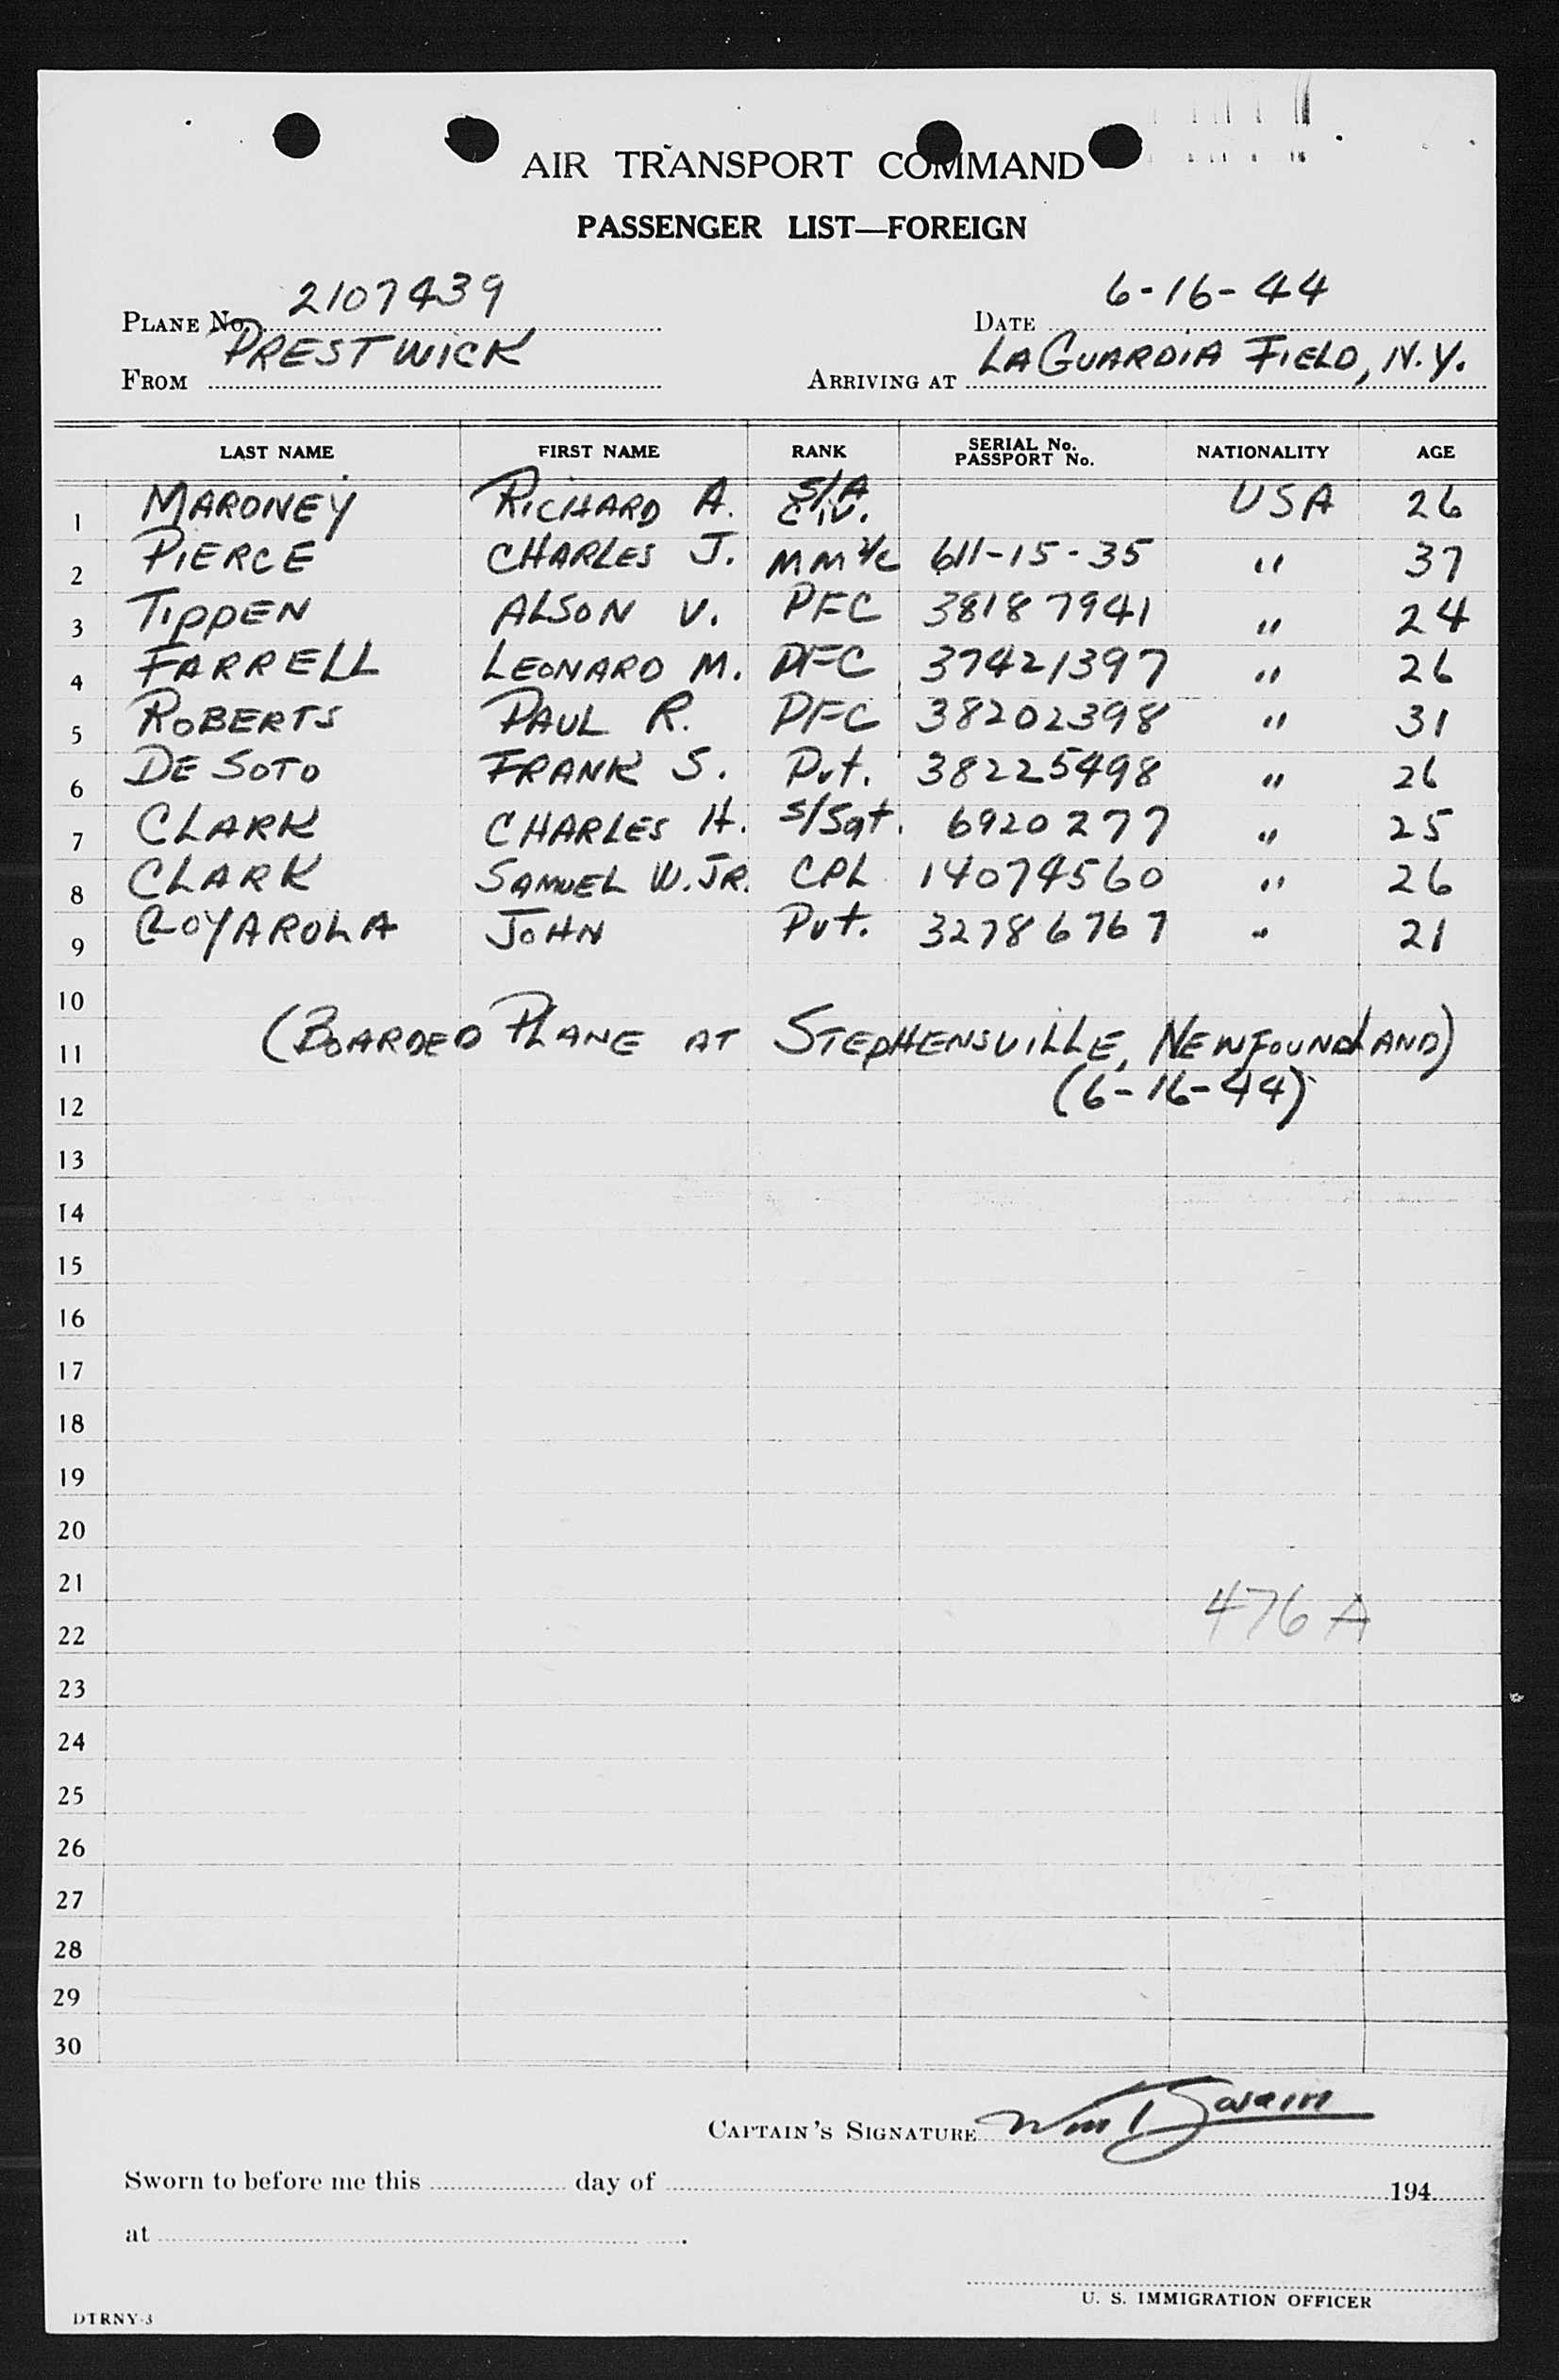 AIR TRANSPORT COMMAND
PASSENGER LIST—FOREIGN
PLANE No. 2107439 DATE 6-16-44
FROM PRESTWICK ARRIVING AT LAGUARDIA FIELD, N.Y.
LAST NAME FIRST NAME RANK SERIAL No. PASSPORT No. NATIONALITY AGE
1 MARONEY RICHARD A. S/A CIV. USA 26
2 PIERCE CHARLES J. MM 2/c 611-15-35 " 37
3 TIPPEN ALSON V. PFC 38187941 " 24
4 FARRELL LEONARD M. PFC 37421397 " 26
5 ROBERTS PAUL R. PFC 38202398 " 31
6 DE SOTO FRANK S. Pvt. 38225498 " 26
7 CLARK CHARLES H. S/Sgt. 6920277 " 25
8 CLARK SAMUEL W. JR. CPL 14074560 " 26
9 COYAROLA JOHN Pvt. 32786767 " 21
10
11 (BOARDED PLANE AT STEPHENSVILLE, NEWFOUNDLAND)
12 (6-16-44)
13
14
15
16
17
18
19
20
21
476 A
22
23
24
25
26
27
28
29
30
CAPTAIN'S SIGNATURE Wm
Sworn to before me this day of 194
at .
U. S. IMMIGRATION OFFICER
DTRNY-3